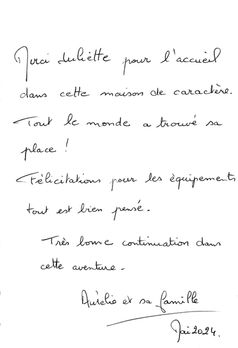 Merci Juliette pour l'accueil
dans cette maison de caractère.
Tout le monde a trouvé sa
place !
Félicitations pour les équipements
tout est bien pensé.
Très bonne continuation dans
cette aventure.
Aurélie et sa famille
Mai 2024.